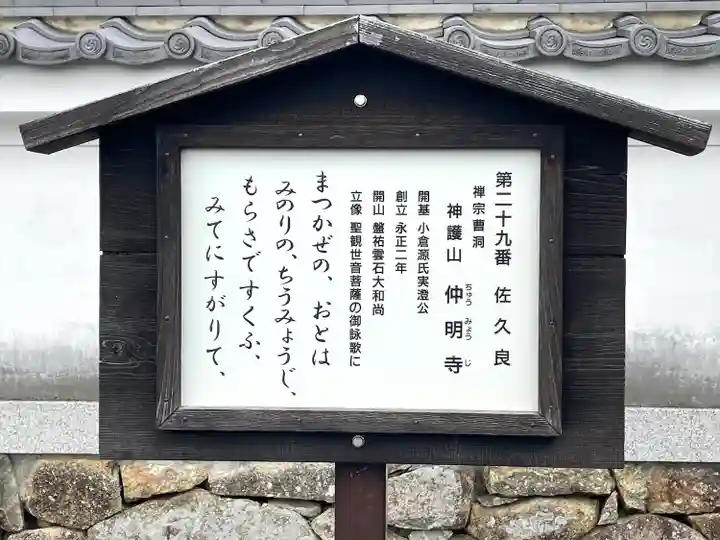 第二十九番 佐久良
禅宗曹洞
神護山 仲明寺
ちゅう みょう じ
開基 小倉源氏実澄公
創立 永正二年
開山 盤祐雲石大和尚
立像 聖観世音菩薩の御詠歌に
まつかぜの、おとは
みのりの、ちうみょうじ、
もらさですくふ、
みてにすがりて、